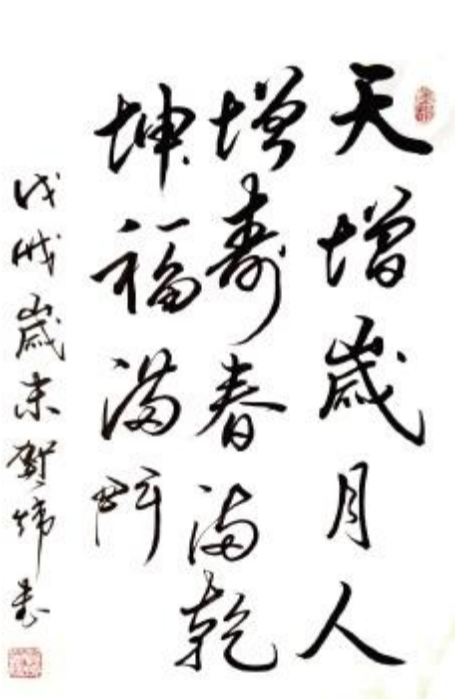 天增歲月人
增寿春满乾
坤福满門
戊戌歲末賀煒書